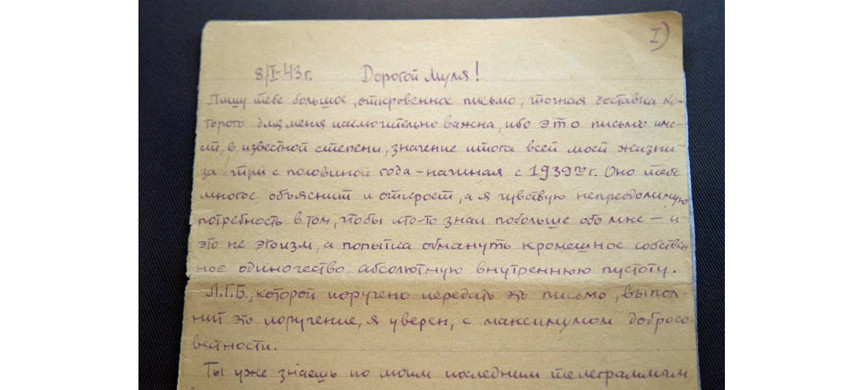 I)
8/I-43г. Дорогой Муля!
Пишу тебе большое, откровенное письмо, точная доставка ко-
торого для меня исключительно важна, ибо это письмо име-
ит, в известной степени, значение итога всей моей жизни
за три с половиной года - начиная с 1939го г. Оно тебе
многое объяснит и откроет, а я чувствую непреодолимую
потребность в том, чтобы кто-то знал побольше обо мне — и
это не эгоизм, а попытка обмануть кромешное собствен-
ное одиночество, абсолютную внутреннюю пустоту.
Л.Г.Б., которой поручено передать это письмо, выпол-
нит это поручение, я уверен, с максимумом добросо-
вестности.
Ты уже знаешь по моим последним телеграммам